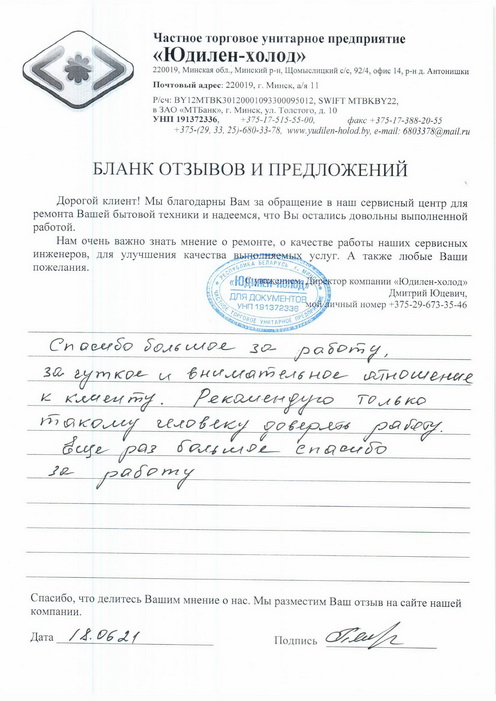 Частное торговое унитарное предприятие
«Юдилен-холод»
220019, Минская обл., Минский р-н, Щомыслицкий с/с, 92/4, офис 14, р-н д. Антонишки
Почтовый адрес: 220019, г. Минск, а/я 11
Р/сч: BY12MTBK30120001093300095012, SWIFT MTBKBY22,
в ЗАО «МТБанк», г. Минск, ул. Толстого, д. 10
УНП 191372336, +375-17-515-55-00, факс +375-17-388-20-55
+375-(29, 33, 25)-680-33-78, www.yudilen-holod.by, e-mail: 6803378@mail.ru
БЛАНК ОТЗЫВОВ И ПРЕДЛОЖЕНИЙ
Дорогой клиент! Мы благодарны Вам за обращение в наш сервисный центр для
ремонта Вашей бытовой техники и надеемся, что Вы остались довольны выполненной
работой.
Нам очень важно знать мнение о ремонте, о качестве работы наших сервисных
инженеров, для улучшения качества выполняемых услуг. А также любые Ваши
пожелания.
С уважением, Директор компании «Юдилен-холод»
Дмитрий Юцевич,
мой личный номер +375-29-673-35-46
РЕСПУБЛИКА БЕЛАРУСЬ г. МИНСК
«ЮДИЛЕН-ХОЛОД»
ДЛЯ ДОКУМЕНТОВ
УНП 191372336
ЧАСТНОЕ ТОРГОВОЕ УНИТАРНОЕ ПРЕДПРИЯТИЕ
Спасибо большое за работу,
за чуткое и внимательное отношение
к клиенту. Рекомендую только
такому человеку доверять работу.
Еще раз большое спасибо
за работу
Спасибо, что делитесь Вашим мнение о нас. Мы разместим Ваш отзыв на сайте нашей
компании.
Дата 18.06 21 Подпись